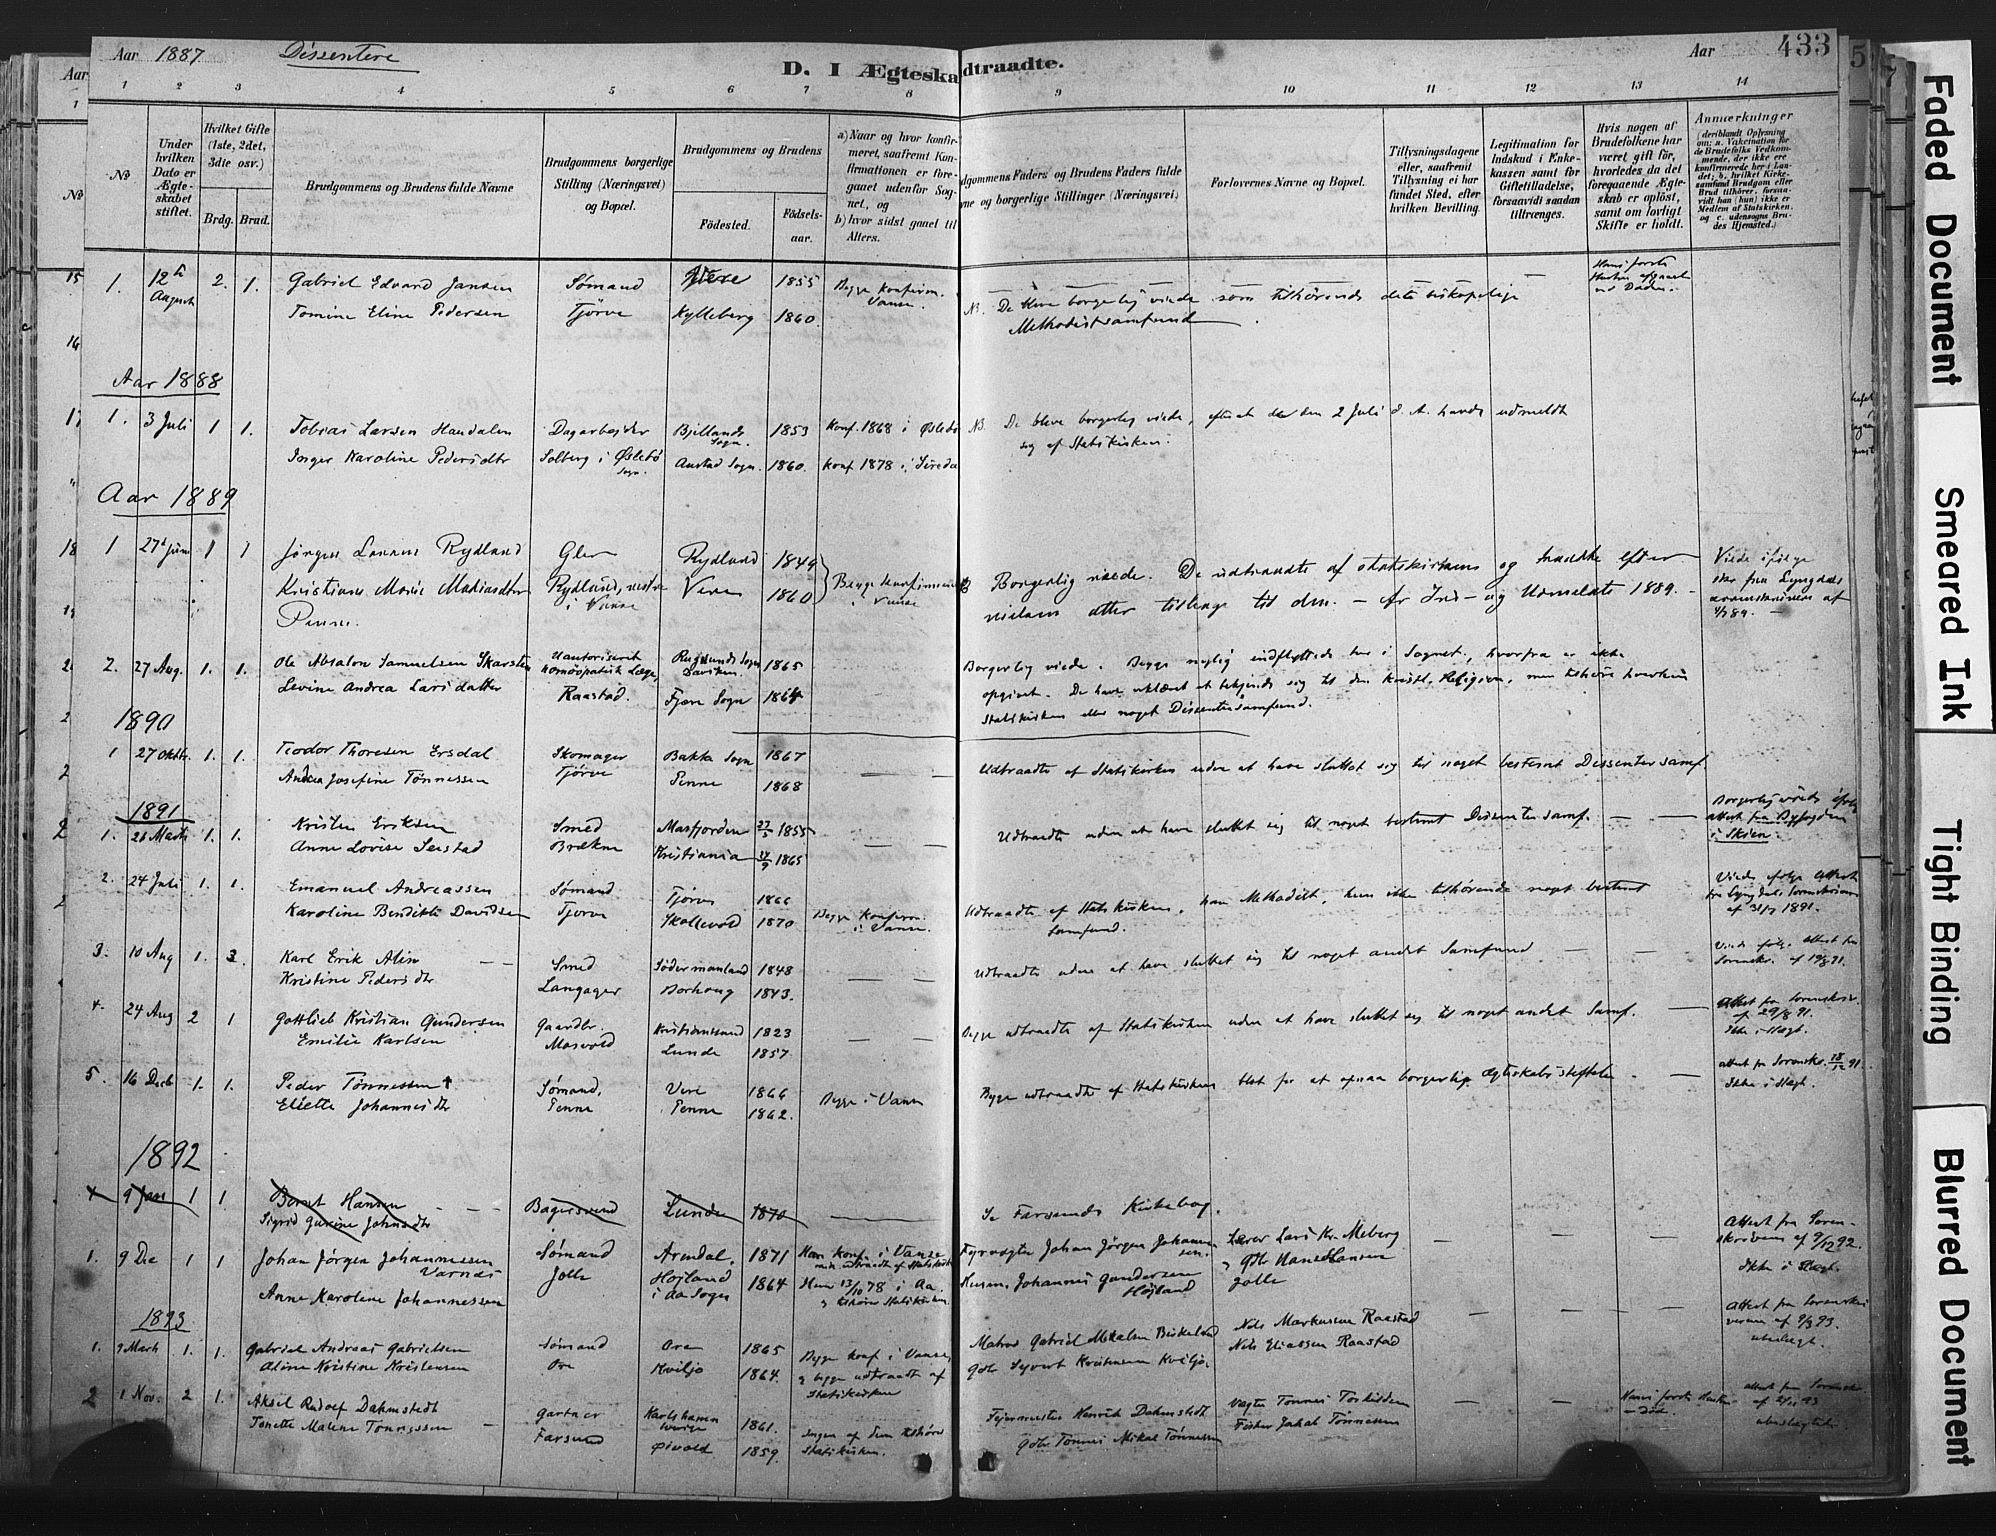 Aar 1887 Dissentere
D. I Ægteskabtraadte.
Aar 433
1 2 3 4 5 6 7 8 9 10 11 12 13 14
No
Under hvilken Dato er Ægteskabet stiftet.
Hvilket Gifte (1ste, 2det, 3die osv.)
Brdg. Brud.
Brudgommens og Brudens fulde Navne
Brudgommens borgerlige Stilling (Næringsvei) og Bopæl.
Brudgommens og Brudens
Fødested. Fødselsaar.
a) Naar og hvor konfirmeret, saafremt Konfirmationen er foregaaet udenfor Sognet, og
b) hvor sidst gaaet til Alters.
dgommens Faders og Brudens Faders fulde
ne og borgerlige Stillinger (Næringsvei)
Forlovernes Navne og Bopæl.
Tillysningsdagene eller, saafremt Tillysning ei har fundet Sted, efter hvilken Bevilling.
Legitimation for Indskud i Enkekassen samt for Giftetilladelse, forsaavidt saadan tiltrænges.
Hvis nogen af Brudefolkene har været gift før, hvorledes da det foregaaende Ægteskab er opløst, samt om lovligt Skifte er holdt.
Anmærkninger
(deriblandt Oplysning om: a. Vakcination for de Brudefolks Vedkommende, der ikke ere konfirmerede her i Landet; b. hvilket Kirkesamfund Brudgom eller Brud tilhører, forsaavidt han (hun) ikke er Medlem af Statskirken, og c. udensogns Brudes Hjemsted.)
1. 12te August 2. 1. Gabriel Edvard Jansen Sømand Vere 1855 Begge konfirm.
Tomine Eline Pedersen Tjørve Kylleberg 1860. Vanse.
N. De bleve borgerlig viede som tilhørende det biskopelige
Methodistsamfund.
Hans første Hustru afgaaet ved Døden.
Aar 1888
1. 3 Juli 1 1. Tobias Larsen Haudalen Dagarbeider Bjellands Sogn. 1853 Konf. 1868 i Øslebø
Inger Karoline Pedersdtr Solberg i Øslebø Sogn. Austad Sogn. 1860. Konf 1878 i Sireda
NB. De bleve borgerlig viede, efterat de den 2 Juli d. A. havde udmeldt
sig af Statskirken.
Aar 1889
1 27d Juni 1 1 Jørgen Rydland Rydland 1849
Kristiane Marie Mathiasdtr Rydland, i Vanse Vere 1860 Begge konfirmerede i Vanse
Penne.
Borgerlig viede. De udtraadte af Statskirken og traadte efter
vielsen atter tilbage til den. - cfr Ind- og Udmeldte 1889.
Viede ifølge
fra Lyngdals
sorenskriveri af
2. 27 Aug. 1. 1. Ole Absalon Samuelsen Skarsten Uautoriseret homöopatisk Læge, Rugsunds Sogn Daviken. 1865
Levine Andrea Larsdatter Raastad. Fjære Sogn 1864
Borgerlig viede. Begge nylig indflyttede her i Sognet, hvorfra er ikke
opgivet. De have erklæret at bekjende sig til den kristl. Religion, men tilhøre hverken
Statskirken eller noget Dissentersamfund.
1890
1 27 Oktbr. 1. 1. Teodor Thoresen Ersdal Skomager Bakke Sogn 1867
Andrea Josefine Tønnessen Tjørve Penne 1868
Udtraadte af Statskirken uden at have sluttet sig til noget bestemt Dissentersamf.
1891
1. 26 Marts 1. 1. Kristen Eriksen Smed Masfjorden 27/5 1855
Anne Lovise Seistad Brækne Kristiania 14/9 1865
Udtraadte uden at have sluttet sig til noget bestemt Dissentersamf.
Borgerlig viede ifølge attest fra Byfogden i Skien.
2. 24 Juli 1. 1. Emanuel Andreassen Sømand Tjørve 1866
Karoline Bendikte Davidsen Tjørve Skollevold 1870 Begge konfirm. i Vanse.
Udtraadte af Statskirken, han Methodist, hun ikke tilhørende noget bestemt
Samfund.
Viede ifølge Attest fra Lyngdals Sorenskriveri af 31/7 1891.
3. 10 Aug 1. 3. Karl Erik Alin Smed Södermanland 1848
Kristine Pedersdtr Langager Borhaug 1843.
Udtraadte uden at have sluttet sig til noget andet Samfund
Viede ifølge Attest fra Sorenskr. af 19/8 91.
4. 24 Aug 2 1 Gottlieb Kristian Gundersen Gaardbr. Kristianssand 1823
Emilie Karlsen Mosvold Lunde 1857
Begge udtraadte af Statskirken uden at have sluttet sig til noget andet Samf.
Attest fra Sorenskr. af 29/8 91. Ikke i Slægt.
5. 16 Decb 1. 1. Peder Tønnessen † Sømand, Vere 1866
Eliette Johannesdtr Penne Penne 1862. Begge i Vanse
Begge udtraadte af Statskirken blot for at opnaa borgerlig Ægteskabsstiftelse.
attest fra Sorenskr. 18/12 91. Ikke i Slægt.
1892
1 9 Jan 1 1 Bernt Hansen Bagersvend Lunde 1870
Sigrid Gurine Johnsdtr
Se Farsunds Kirkebog.
1. 9 De 1 1 Johan Jørgen Johannessen Varnes Sømand Arendal. 1871 Han konf. i Vanse
Anne Karoline Johannessen Jølle Højland i Aa Sogn 1864 Hun 13/10 78 i Aa. tilhører Statskirken
Fyrvogter Johan Jørgen Johannessen Lærer Lars Kr. Meberg
Husm. Johannes Gundersen Højland Gbr Hans Hansen Jølle
Attest fra Sorenskriveren af 9/12 92. Ikke i Slægt.
1893
1. 9 Mart 1. 1. Gabriel Andreas Gabrielsen Sømand Ore 1865 Begge konf. i Vanse,
Aline Kristine Kristensen Ore Kviljo 1864. og begge udtraadt af Statskirken
Matros Gabriel Mikalsen Birkeland Nils Markussen Raastad
Gbr Syvert Kristensen Kviljo. Nils Eliassen Raastad
Attest fra Sorenskriveren af 9/3 93. ubeslægt.
2 1 Nov. 2 1. Aksel Rudolf Dahmstedt Gartner Karlshamn Sverige 1861. Ingen af dem tilhører
Tonette Malene Tønnessen Farsund Øivold 1859. Statskirken.
Fejermester Henrik Dahmstedt Vogter Tønnes Torkildsen
Gbr Tønnes Mikal Tønnessen Fisker Jakob Tønnessen
Hans første Hustru død.
attest fra Sorenskr. af 2/11 93 ubeslægtede
Faded Document
Smeared Ink
Tight Binding
Blurred Document